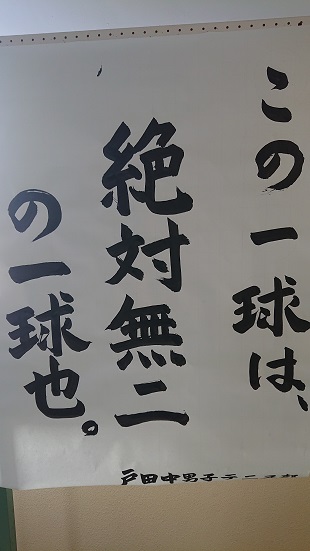 この一球は、
絶対無二
の一球也。
戸田中男子テニス部